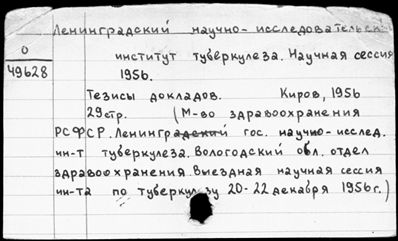 Ленинградский научно-исследовательск
О
49628
институт туберкулеза. Научная сессия
1956.
Тезисы докладов. Киров, 1956
29стр. (М-во здравоохранения
РСФСР. Ленинградский гос. научно-исслед.
ин-т туберкулеза. Вологодский обл. отдел
здравоохранения. Выездная научная сессия
ин-та по туберкулезу 20-22 декабря 1956г.)